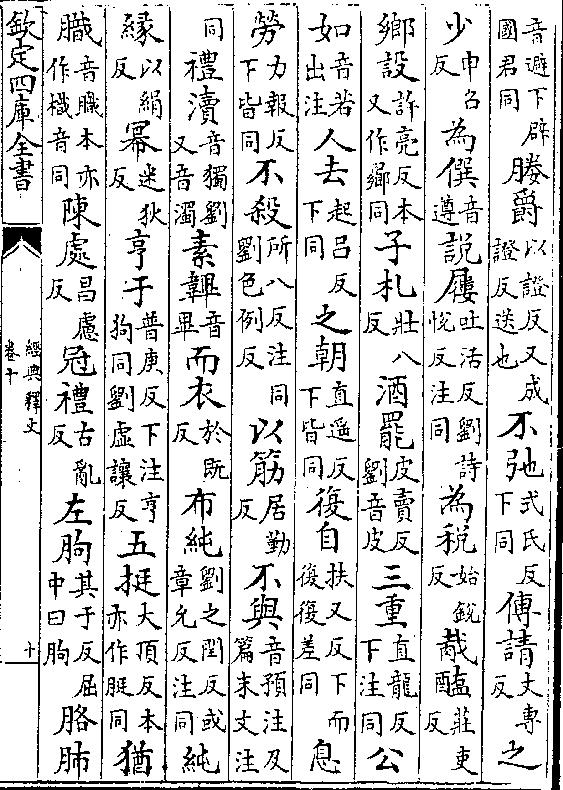 音避下辟國君同媵爵以證反又成證反送也不弛式氏反下同傳請丈專反之
少申召反為僎音遵說屨吐活反劉詩悅反注同為稅始銳反胾醢莊吏反
鄉設許亮反本又作嚮同子札壯八反酒罷皮賣反劉音皮三重直龍反下注同公
如音若出注人去起呂反下同之朝直遥反下皆同復自扶又反下而復復差同息
勞力報反下皆同不殺所八反注同劉色例反以筋居勤反不與音預注及篇末文注
同禮瀆音獨劉又音濁素韠音畢而衣於既反布純劉之閏反或章允反注同純
緣以絹反冪迷狄反亨于普庚反下注亨狗同劉虛讓反五挺大頂反本亦作脡同猶
膱音職本亦作樴音同陳處昌慮反冠禮古亂反左朐其于反屈中曰朐胳肺
欽定四庫全書
經典釋文
卷十
十